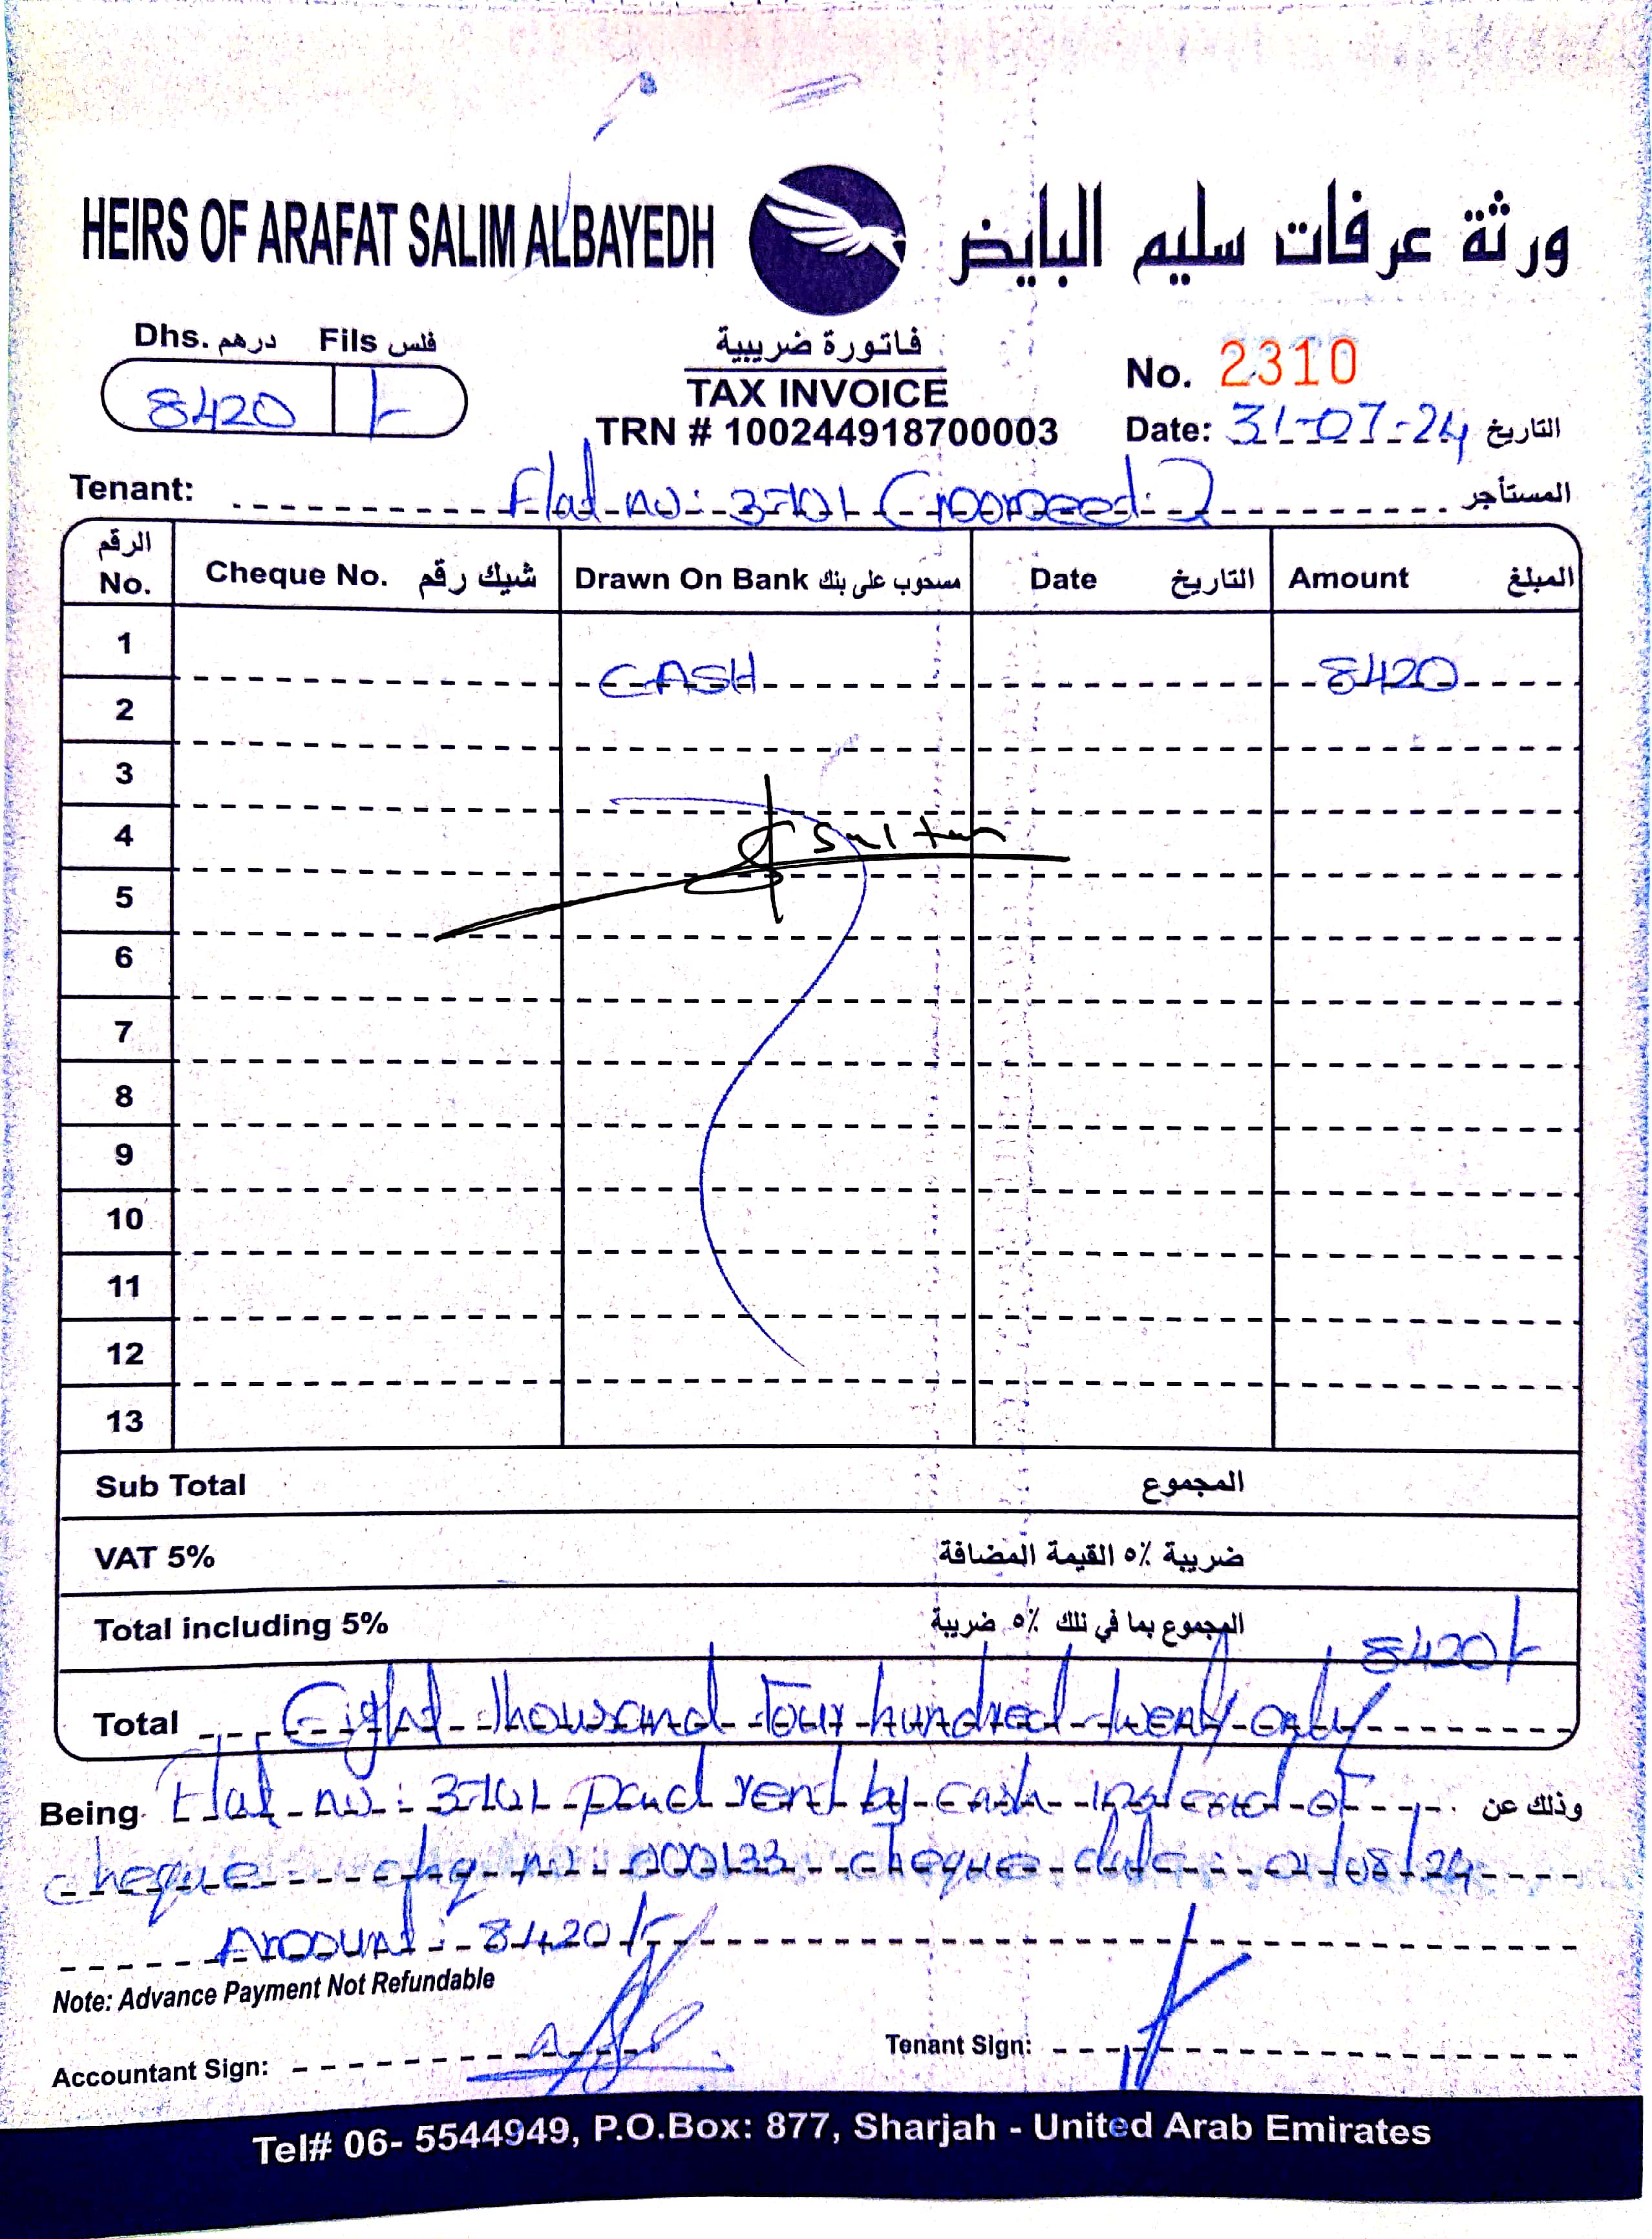 HEIRS OF ARAFAT SALIM ALBAYEDH ورثة عرفات سليم البايض
Dhs. درهم Fils فلس
8420 /-
فاتورة ضريبية
TAX INVOICE
TRN # 100244918700003
No. 2310
Date: 31-07-24 التاريخ
Tenant: Flat no: 3-101 المستأجر
الرقم No. Cheque No. شيك رقم Drawn On Bank مسحوب على بنك Date التاريخ Amount المبلغ
1 CASH 8420
2
3
4 Sultan
5
6
7
8
9
10
11
12
13
Sub Total المجموع
VAT 5% ضريبة ٥٪ القيمة المضافة
Total including 5% المجموع بما في ذلك ٥٪ ضريبة 8420/-
Total Eight thousand Four hundred twenty only
Being Flat no: 3-101 paid rent by cash instead of وذلك عن
cheque chq no: 000133 cheque date: 01/08/24
Amount: 8420/-
Note: Advance Payment Not Refundable
Accountant Sign: Tenant Sign:
Tel# 06- 5544949, P.O.Box: 877, Sharjah - United Arab Emirates